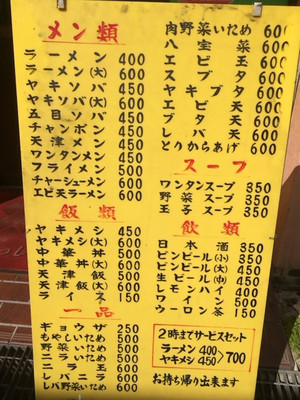 メン類
ラーメン 400
ラーメン(大) 600
ヤキソバ 450
ヤキソバ(大) 600
五目ソバ 500
チャンポン 500
天津メン 500
ワンタンメン 500
フライメン 550
チャーシューメン 600
エビ天ラーメン 600
飯類
ヤキメシ 450
ヤキメシ(大) 600
中華丼 500
中華丼(大) 600
天津飯 500
ライス 150
一品
ギョウザ 250
もやしいため 500
野菜いため 500
ニラいため 500
ニラ玉 600
レバニラ 600
レバ野菜いため 600
肉野菜いため 600
八宝菜 600
エビ玉 600
スブタ 600
ヤキブタ 600
エビ天 600
ブタ天 600
レバ天 600
とりからあげ 600
スープ
ワンタンスープ 350
野菜スープ 350
玉子スープ 350
飲類
日本酒 350
ビンビール(小) 350
ビンビール(大) 600
生ビール(中) 450
レモンハイ 400
ワイン 500
ウーロン茶 150
2時までサービスセット
ラーメン 400
ヤキメシ 450
>700
お持ち帰り出来ます